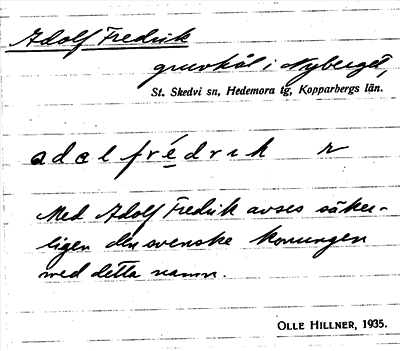 Adolf Fredrik
gruvhål i Nyberget,
St. Skedvi sn, Hedemora tg, Kopparbergs län.
adolfrédrik r
Med Adolf Fredrik avses säker-
ligen den svenske konungen
med detta namn.
OLLE HILLNER, 1935.